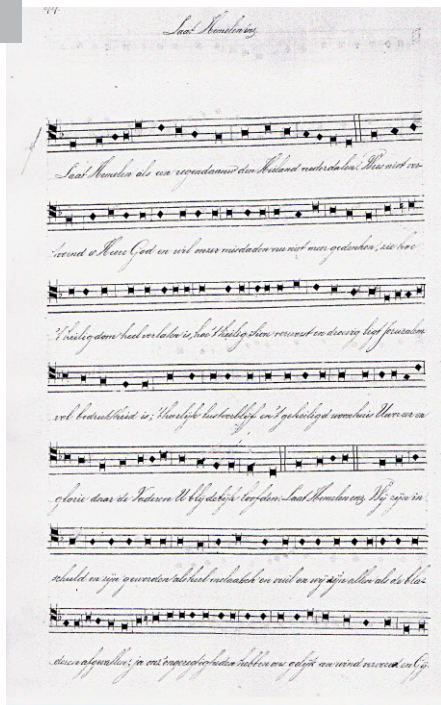 Laat Hemelen enz
Laat Hemelen als een regendaauw den Heiland nederdalen! Wees niet ver-
toornd o Heere God en wil onzer misdaden nu niet meer gedenken, zie hoe
't heiligdom heel verlaten is, hoe 't heilig Sion verwoest en droevig ligt Jerusalem
vol bedruktheid is; 't heerlijk lustverblijf en 't geheiligd woonhuis Uwer eer en
glorie daar de Vaderen U blijdelijk loofden. Laat Hemelen enz. Wij zijn in
schuld en zijn geworden als heel melaatsch en vuil en wij zijn allen als de bla-
deren afgevallen; ja ons' ongeregtigheden hebben ons gelijk een wind vervoerd en Gij